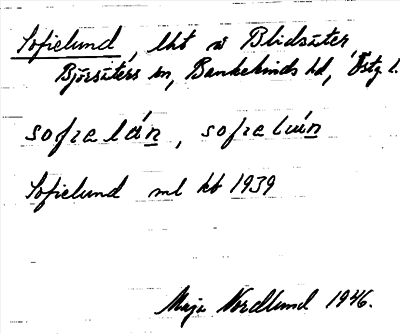 Sofielund, lht å Blidsäter,
Björsäters sn, Bankekinds hd, Östg. l.
sofielán, sofielún
Sofielund ml kb 1939
Maja Nordlund 1946.